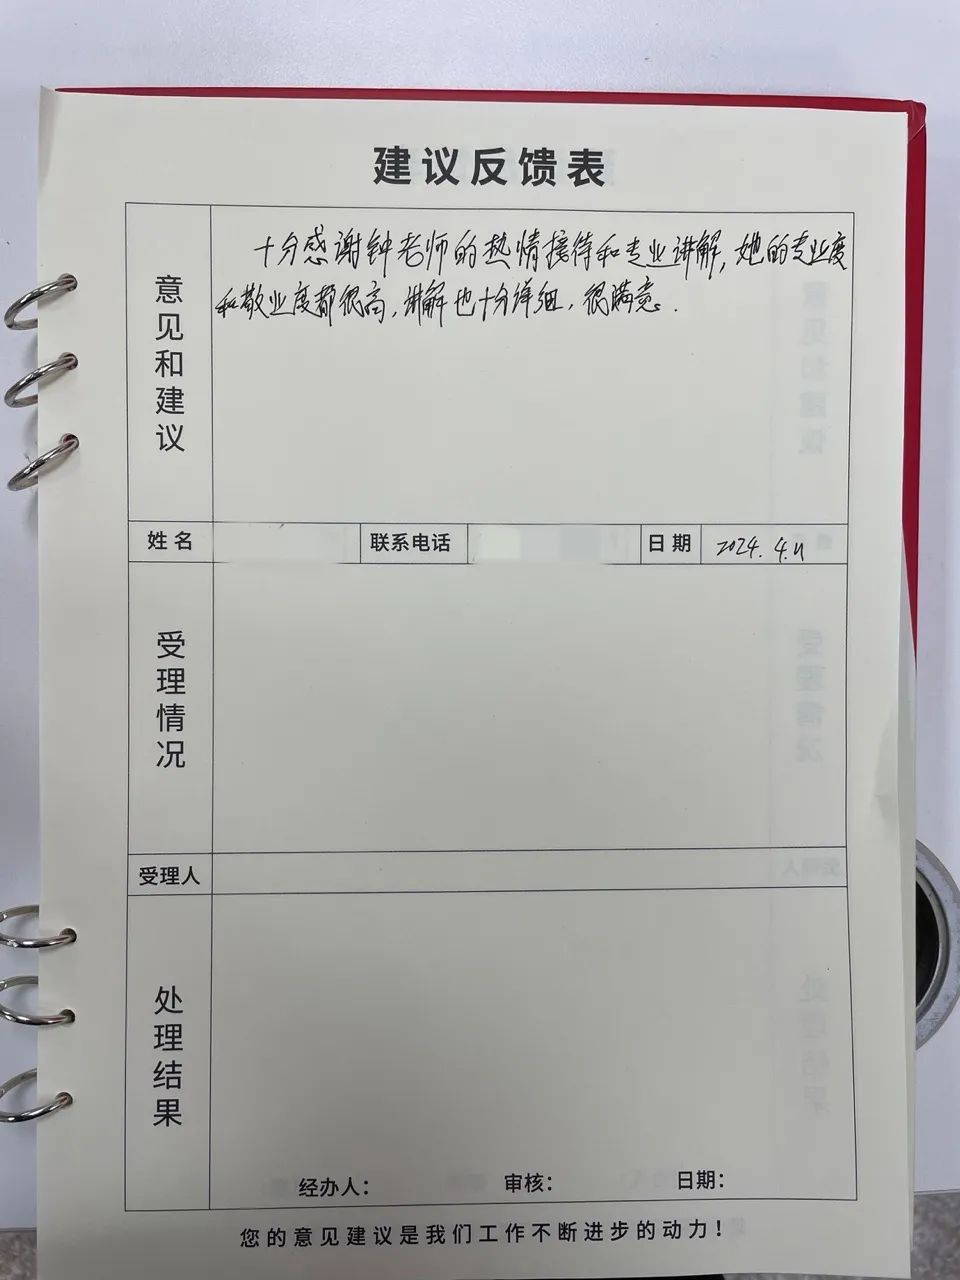 建议反馈表
意见和建议
十分感谢钟老师的热情接待和专业讲解,她的专业度
和敬业度都很高,讲解也十分详细,很满意.
姓名
联系电话
日期
2024.4.11
受理情况
受理人
处理结果
经办人:
审核:
日期:
您的意见建议是我们工作不断进步的动力!